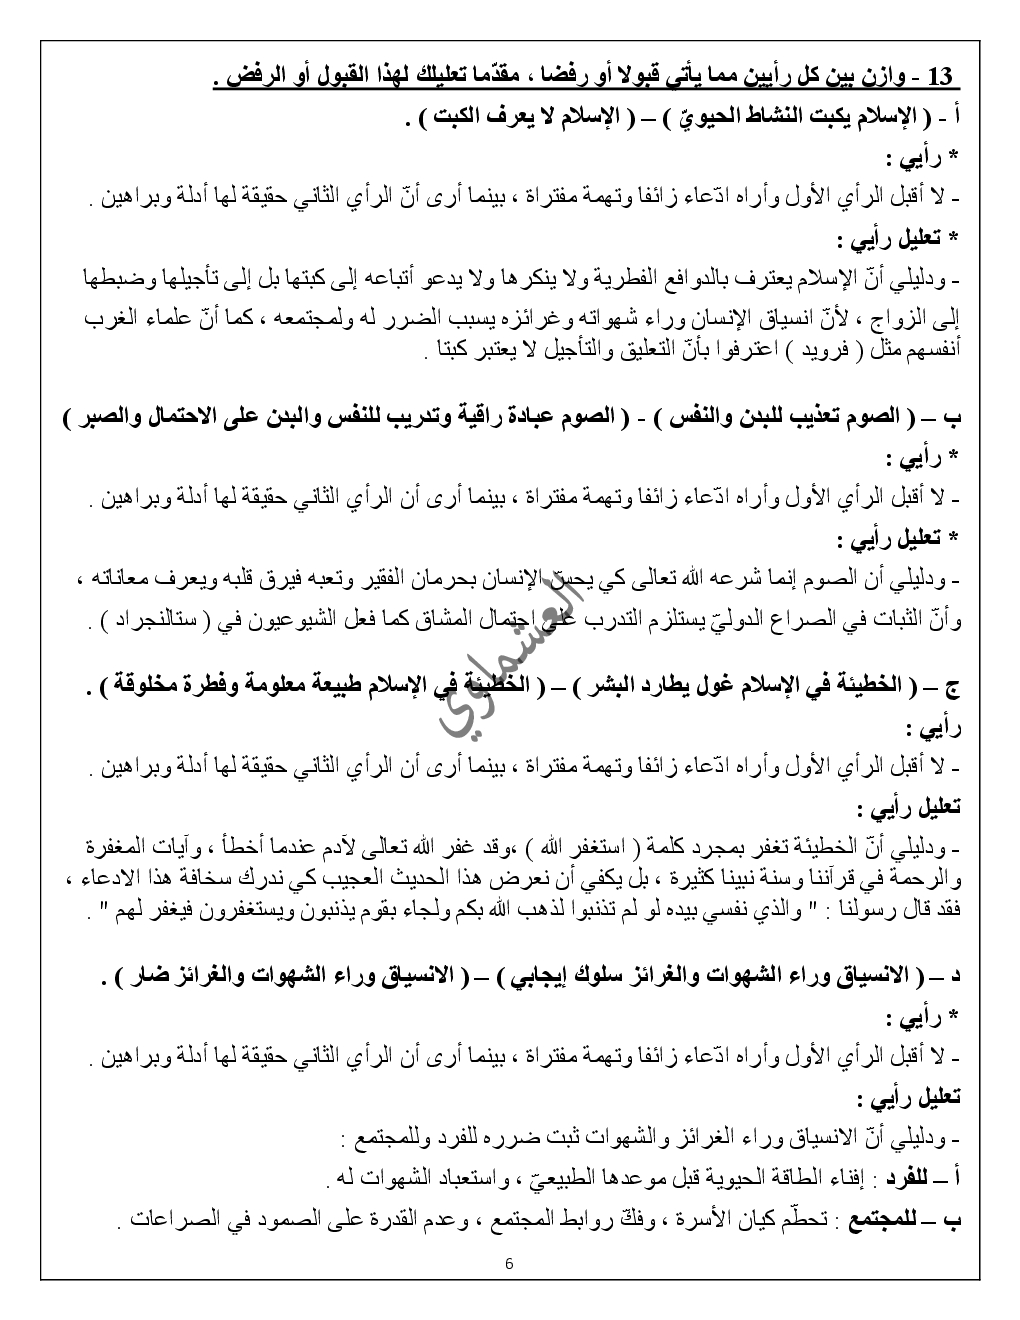 13 - وازن بين كل رأيين مما يأتي قبولا أو رفضا ، مقدّما تعليلك لهذا القبول أو الرفض .
أ - ( الإسلام يكبت النشاط الحيويّ ) – ( الإسلام لا يعرف الكبت ) .
* رأيي :
- لا أقبل الرأي الأول وأراه ادّعاء زائفا وتهمة مفتراة ، بينما أرى أنّ الرأي الثاني حقيقة لها أدلة وبراهين .
* تعليل رأيي :
- ودليلي أنّ الإسلام يعترف بالدوافع الفطرية ولا ينكرها ولا يدعو أتباعه إلى كبتها بل إلى تأجيلها وضبطها
إلى الزواج ، لأنّ انسياق الإنسان وراء شهواته وغرائزه يسبب الضرر له ولمجتمعه ، كما أنّ علماء الغرب
أنفسهم مثل ( فرويد ) اعترفوا بأنّ التعليق والتأجيل لا يعتبر كبتا .
ب – ( الصوم تعذيب للبدن والنفس ) - ( الصوم عبادة راقية وتدريب للنفس والبدن على الاحتمال والصبر )
* رأيي :
- لا أقبل الرأي الأول وأراه ادّعاء زائفا وتهمة مفتراة ، بينما أرى أن الرأي الثاني حقيقة لها أدلة وبراهين .
* تعليل رأيي :
- ودليلي أن الصوم إنما شرعه الله تعالى كي يحسّ الإنسان بحرمان الفقير وتعبه فيرق قلبه ويعرف معاناته ،
وأنّ الثبات في الصراع الدوليّ يستلزم التدرب على احتمال المشاق كما فعل الشيوعيون في ( ستالنجراد ) .
العشماوي
ج – ( الخطيئة في الإسلام غول يطارد البشر ) – ( الخطيئة في الإسلام طبيعة معلومة وفطرة مخلوقة ) .
رأيي :
- لا أقبل الرأي الأول وأراه ادّعاء زائفا وتهمة مفتراة ، بينما أرى أن الرأي الثاني حقيقة لها أدلة وبراهين .
تعليل رأيي :
- ودليلي أنّ الخطيئة تغفر بمجرد كلمة ( استغفر الله ) ،وقد غفر الله تعالى لآدم عندما أخطأ ، وآيات المغفرة
والرحمة في قرآننا وسنة نبينا كثيرة ، بل يكفي أن نعرض هذا الحديث العجيب كي ندرك سخافة هذا الادعاء ،
فقد قال رسولنا : " والذي نفسي بيده لو لم تذنبوا لذهب الله بكم ولجاء بقوم يذنبون ويستغفرون فيغفر لهم " .
د – ( الانسياق وراء الشهوات والغرائز سلوك إيجابي ) – ( الانسياق وراء الشهوات والغرائز ضار ) .
* رأيي :
- لا أقبل الرأي الأول وأراه ادّعاء زائفا وتهمة مفتراة ، بينما أرى أن الرأي الثاني حقيقة لها أدلة وبراهين .
تعليل رأيي :
- ودليلي أنّ الانسياق وراء الغرائز والشهوات ثبت ضرره للفرد وللمجتمع :
أ – للفرد : إفناء الطاقة الحيوية قبل موعدها الطبيعيّ ، واستعباد الشهوات له .
ب – للمجتمع : تحطّم كيان الأسرة ، وفكّ روابط المجتمع ، وعدم القدرة على الصمود في الصراعات .
6